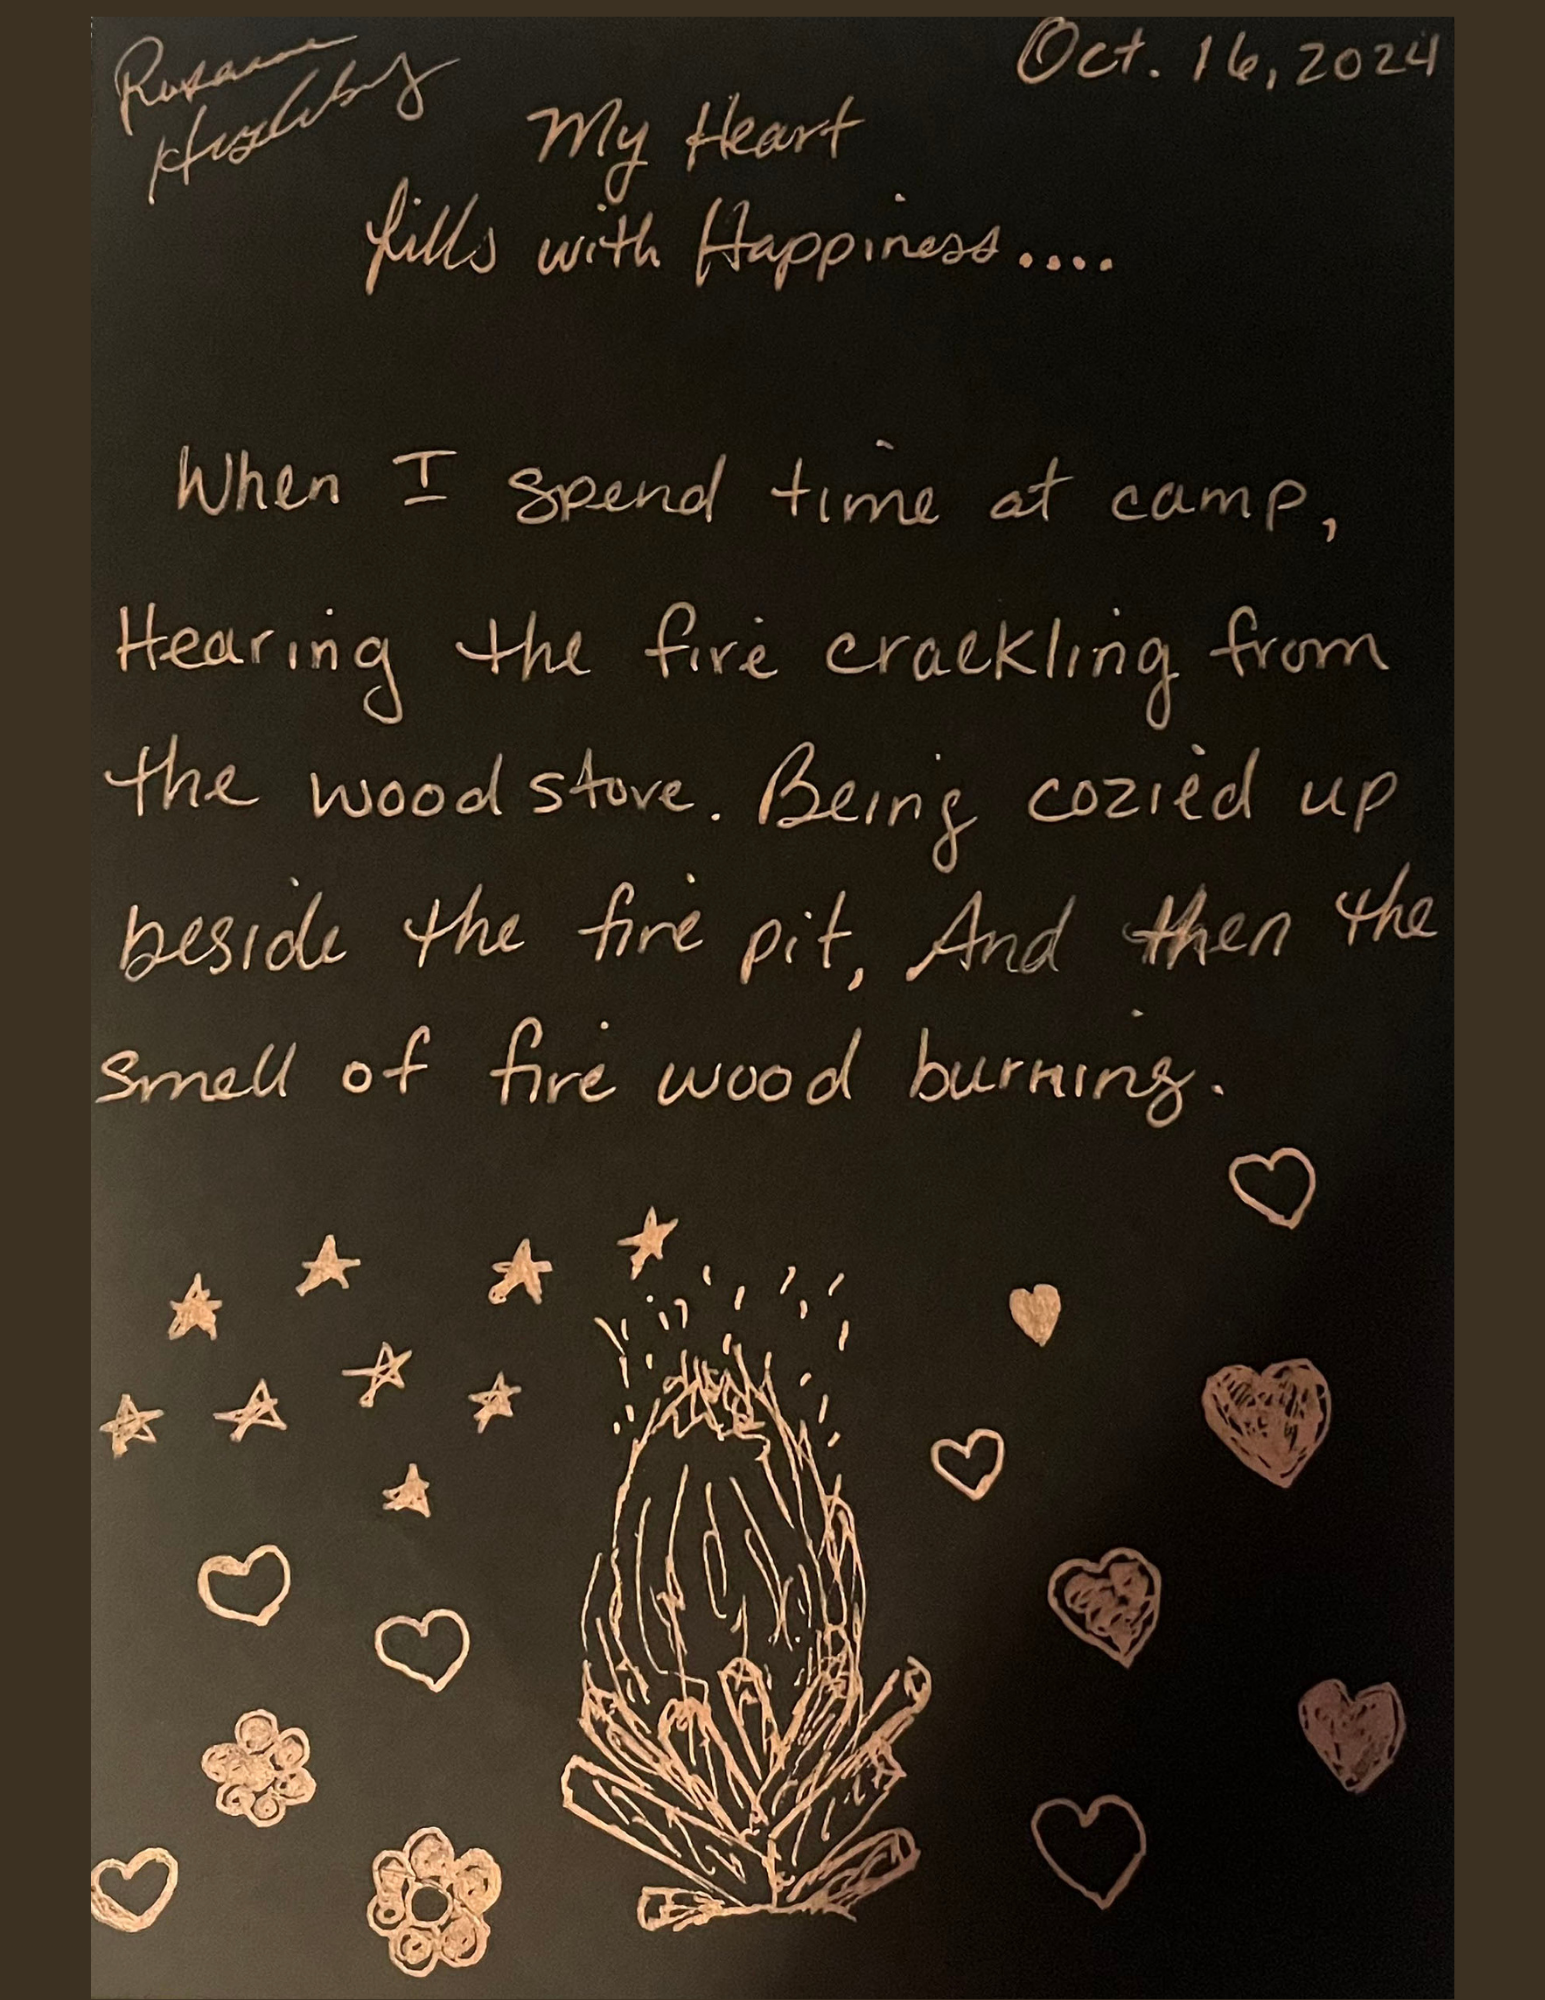 Oct. 16, 2024
My Heart
fills with Happiness....
When I spend time at camp,
Hearing the fire crackling from
the wood stove. Being cozied up
beside the fire pit, And then the
smell of fire wood burning.